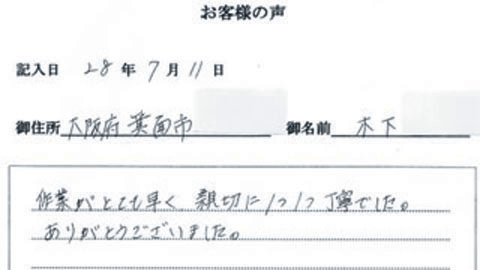 お客様の声
記入日 28年7月11日
御住所 大阪府箕面市 御名前 木下
作業がとても早く 親切に1つ1つ丁寧でした。
ありがとうございました。